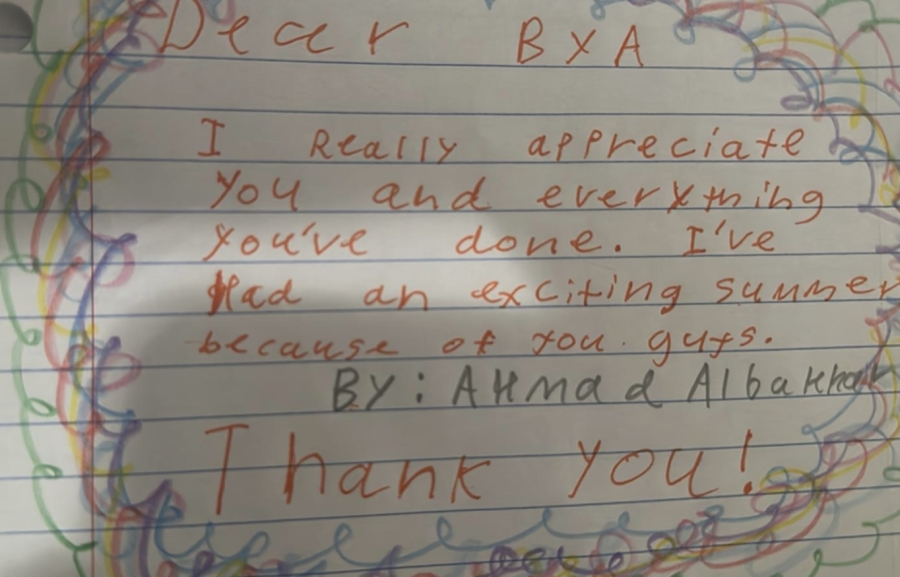 Dear BYA
I Really appreciate
you and everything
you've done. I've
Had an exciting summer
because of you guys.
BY: AHmad
Thank you!